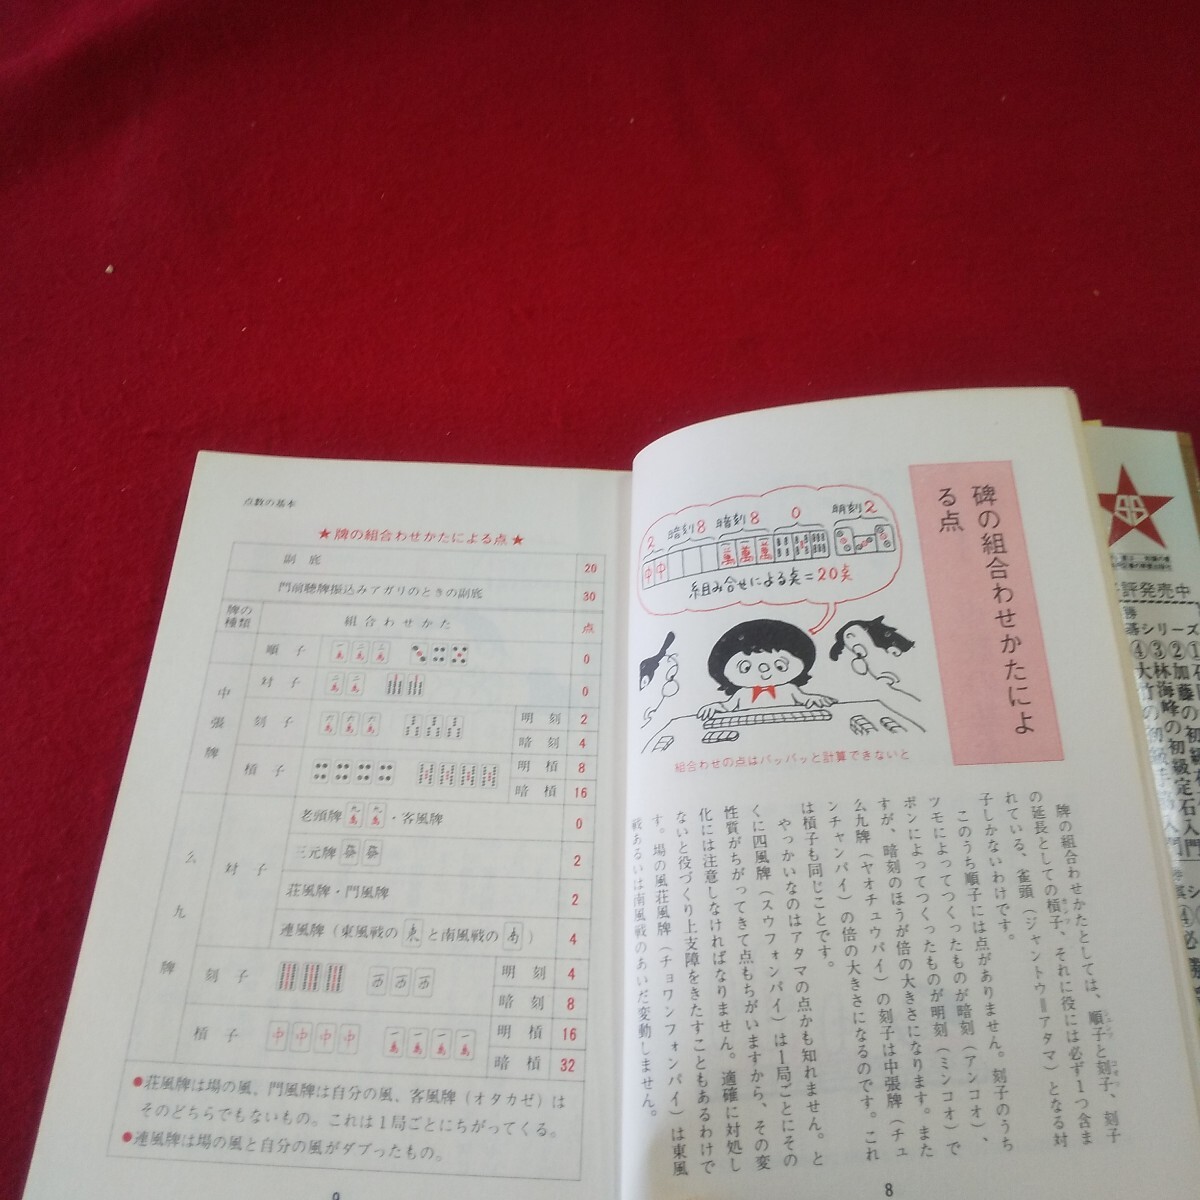 牌の組合わせかたによ
る点
2
暗刻8
暗刻8
0
明刻2
組み合せによる点=20点
組合わせの点はパッパッと計算できないと
牌の組合わせかたとしては、順子と刻子、刻子
の延長としての槓子、それに役には必ず1つ含ま
れている、雀頭(ジャントウ=アタマ)となる対
子しかないわけです。
このうち順子には点がありません。刻子のうち
ツモによってつくったものが暗刻(アンコオ)、
ポンによってつくったものが明刻(ミンコオ)で
すが、暗刻のほうが倍の大きさになります。また
么九牌(ヤオチュウパイ)の刻子は中張牌(チュ
ンチャンパイ)の倍の大きさになるのです。これ
は槓子も同じことです。
やっかいなのはアタマの点かも知れません。と
くに四風牌(スウフォンパイ)は1局ごとにその
性質がちがってきて点もちがいますから、その変
化には注意しなければなりません。適確に対処し
ないと役づくり上支障をきたすこともあるわけで
す。場の風荘風牌(チョワンフォンパイ)は東風
戦あるいは南風戦のあいだ変動しません。
8
点数の基本
★牌の組合わせかたによる点★
副底 20
門前聴牌振込みアガリのときの副底 30
牌の種類 組合わせかた 点
中張牌
順子 0
対子 0
刻子 明刻 2
暗刻 4
槓子 明槓 8
暗槓 16
么九牌
対子 老頭牌・客風牌 0
三元牌 2
荘風牌・門風牌 2
連風牌(東風戦の東と南風戦の南) 4
刻子 明刻 4
暗刻 8
槓子 明槓 16
暗槓 32
●荘風牌は場の風、門風牌は自分の風、客風牌(オタカゼ)は
そのどちらでもないもの。これは1局ごとにちがってくる。
●連風牌は場の風と自分の風がダブったもの。
9
評発売中
シリーズ
②加藤の初級
③林海峰の初級定石入門